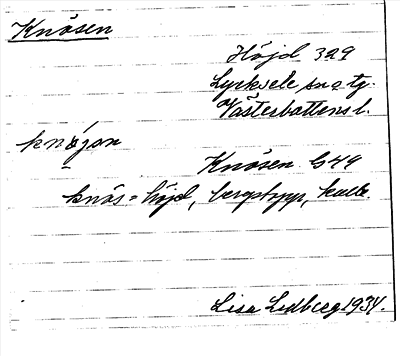 Knösen
Höjd 329
Lycksele sn o tg.
Västerbottens l.
knøjan
Knösen G49
knös = höjd, bergstopp, kulle.
Lisa Lidberg 1934.